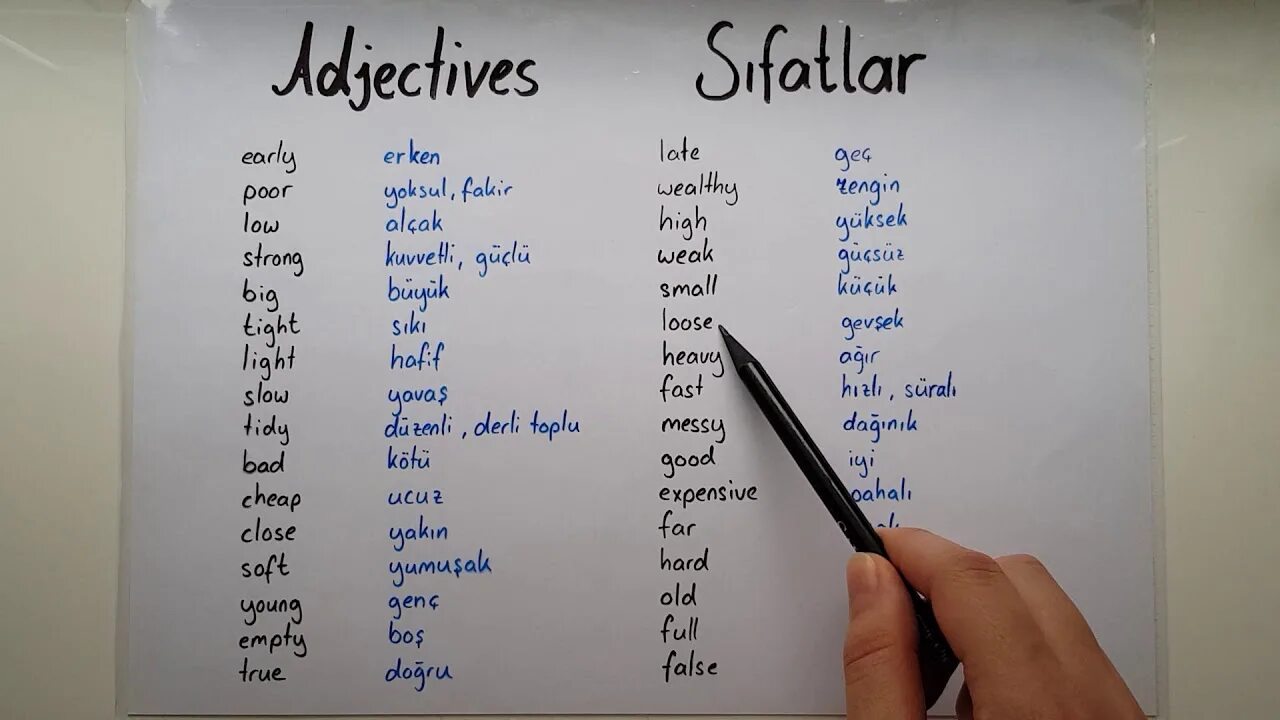 Adjectives Sıfatlar
early erken late geç
poor yoksul, fakir wealthy zengin
low alçak high yüksek
strong kuvvetli, güçlü weak güçsüz
big büyük small küçük
tight sıkı loose gevşek
light hafif heavy ağır
slow yavaş fast hızlı, süralı
tidy düzenli, derli toplu messy dağınık
bad kötü good iyi
cheap ucuz expensive pahalı
close yakın far
soft yumuşak hard
young genç old
empty boş full
true doğru false